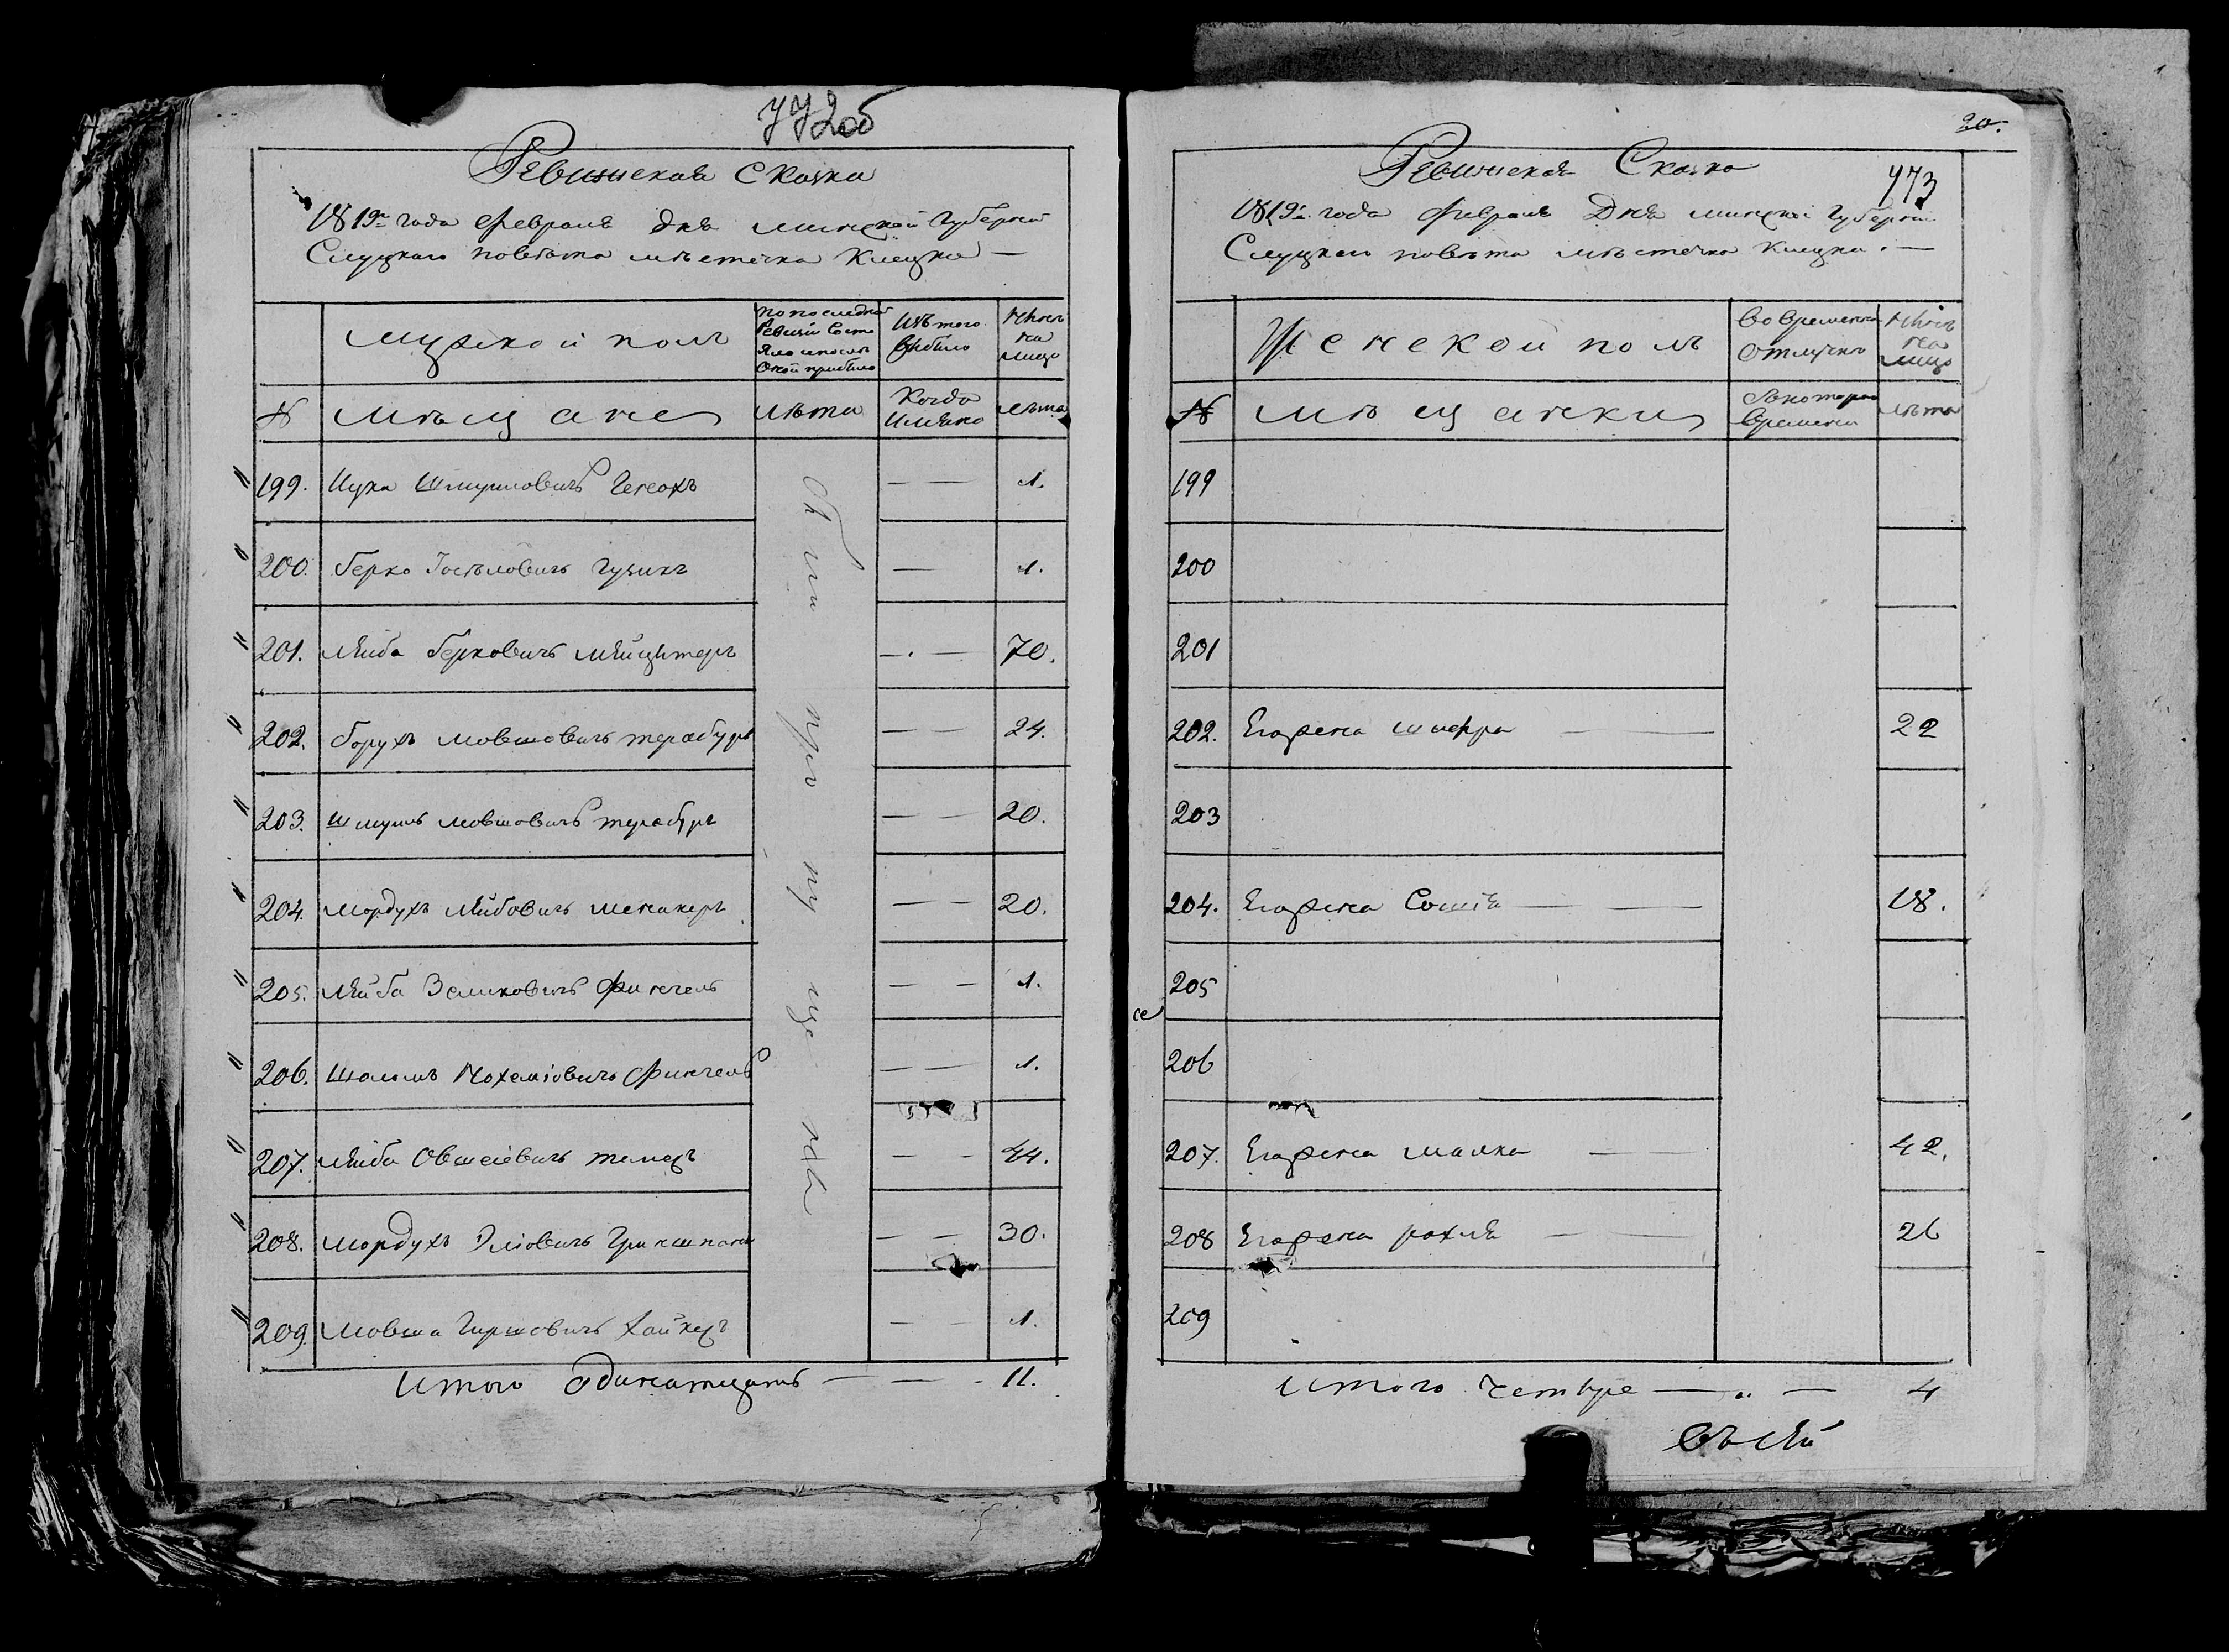 772об
Ревижская Сказка
1819го года Февраля Дня минской Губернии
Слуцкаго повѣта мѣстечка Клецка —
Мужской полъ
по последной Ревизіи Состояло и после Оной прибыло
Изъ того выбыло
Нынѣ на лицо
№ мѣщане
лѣта
Когда имянно
лѣта
199. Ицка Шмуиловичъ 1.
200. Берко Іосѣловичъ Гузикъ — 1.
201. Лейба Берковичъ — — 70.
202. Борухъ Мовшовичъ — — 24.
203. Шмуиль Мовшовичъ — — 20.
204. Мордухъ Лейбовичъ Менакеръ — — 20.
205. Лейба Зеликовичъ Финкель — — 1.
206. Шоломъ Нохеміовичъ Финкель — — 1.
207. Лейба Овшеіовичъ — — 44.
208. Мордухъ Эліовичъ Гриншпанъ — — 30.
209. Мовша Гиршовичъ Хайкеръ — — 1.
были пропущена
Итого одинатцать — — - 11.
20.
773
Ревижская Сказка
1819го года Февраля Дня минской Губерніи
Слуцкаго повѣта мѣстечка Клецка. —
Женской полъ
Во временной отлучкѣ
Нынѣ на лицо
№ мѣщанки
Съкотораго времени
лѣта
199
200
201
202. Егожена Шифра — — 22
203
204. Егожена Сошія — — 18.
205
206
207. Егожена Малка — — 42.
208 Егожена Рохля — — 26
209
Итого Четыре — „ — 4